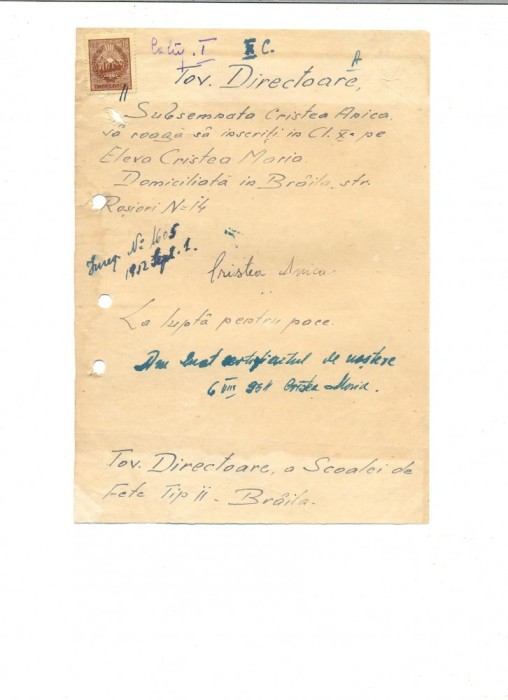 X C.
A
Tov. Directoare,
Subsemnata Cristea Anica
vă roagă să inscriți in Cl. X-a pe
Eleva Cristea Maria
Domiciliată in Brăila, str.
Roșiori N= 14
Inreg. № 1605
1952 Sept. 1.
Cristea Anica
La luptă pentru pace.
Am luat certificatul de naștere
6 VIII 954 Cristea Maria.
Tov. Directoare, a Scoalei de
Fete Tip II - Brăila.